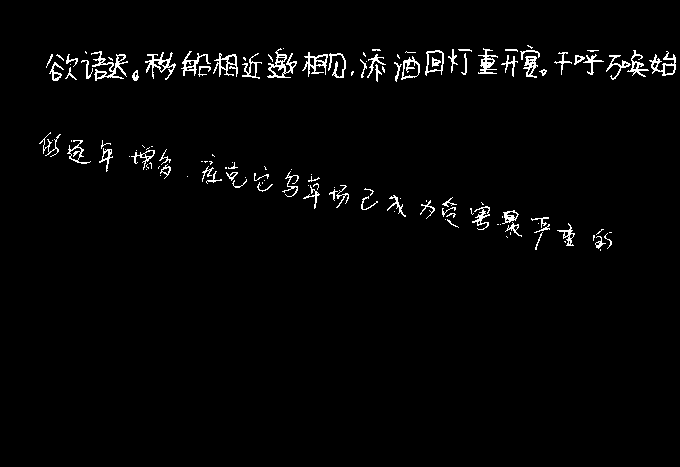 欲语迟。移船相近邀相见,添酒回灯重开宴。千呼万唤始
的逐年增多.库克它乌草场已成为受害最严重的